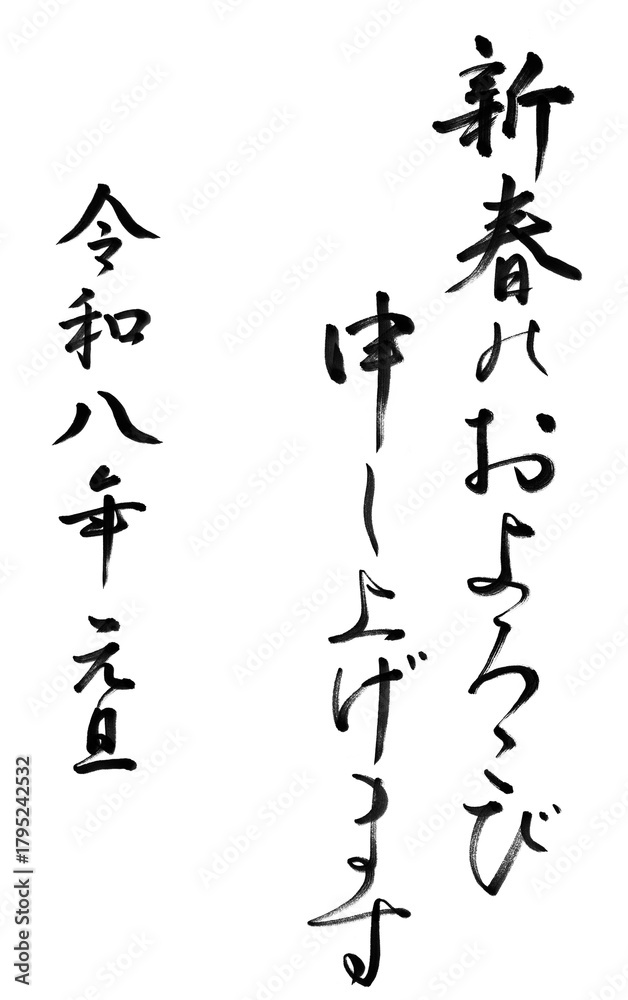 新春のおよろこび
申し上げます
令和八年 元旦
Adobe Stock | #1795242532